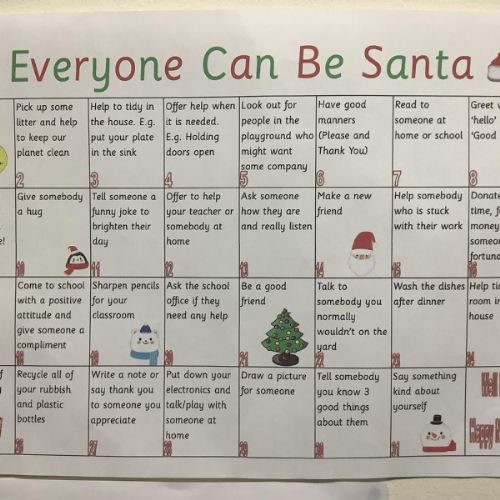 Everyone Can Be Santa
Pick up some
litter and help
to keep our
planet clean
2
Help to tidy in
the house. E.g.
put your plate
in the sink
3
Offer help when
it is needed.
E.g. Holding
doors open
4
Look out for
people in the
playground who
might want
some company
5
Have good
manners
(Please and
Thank You)
6
Read to
someone at
home or school
7
Greet
'hello'
'Good
8
Give somebody
a hug
10
Tell someone a
funny joke to
brighten their
day
11
Offer to help
your teacher or
somebody at
home
12
Ask someone
how they are
and really listen
13
Make a new
friend
14
Help somebody
who is stuck
with their work
15
Donate
time,
money
someo
fortuna
16
Come to school
with a positive
attitude and
give someone a
compliment
18
Sharpen pencils
for your
classroom
19
Ask the school
office if they
need any help
20
Be a good
friend
21
Talk to
somebody you
normally
wouldn't on the
yard
22
Wash the dishes
after dinner
23
Help tid
room in
house
24
Recycle all of
your rubbish
and plastic
bottles
26
Write a note or
say thank you
to someone you
appreciate
27
Put down your
electronics and
talk/play with
someone at
home
28
Draw a picture
for someone
29
Tell somebody
you know 3
good things
about them
30
Say something
kind about
yourself
31
Well
Happy